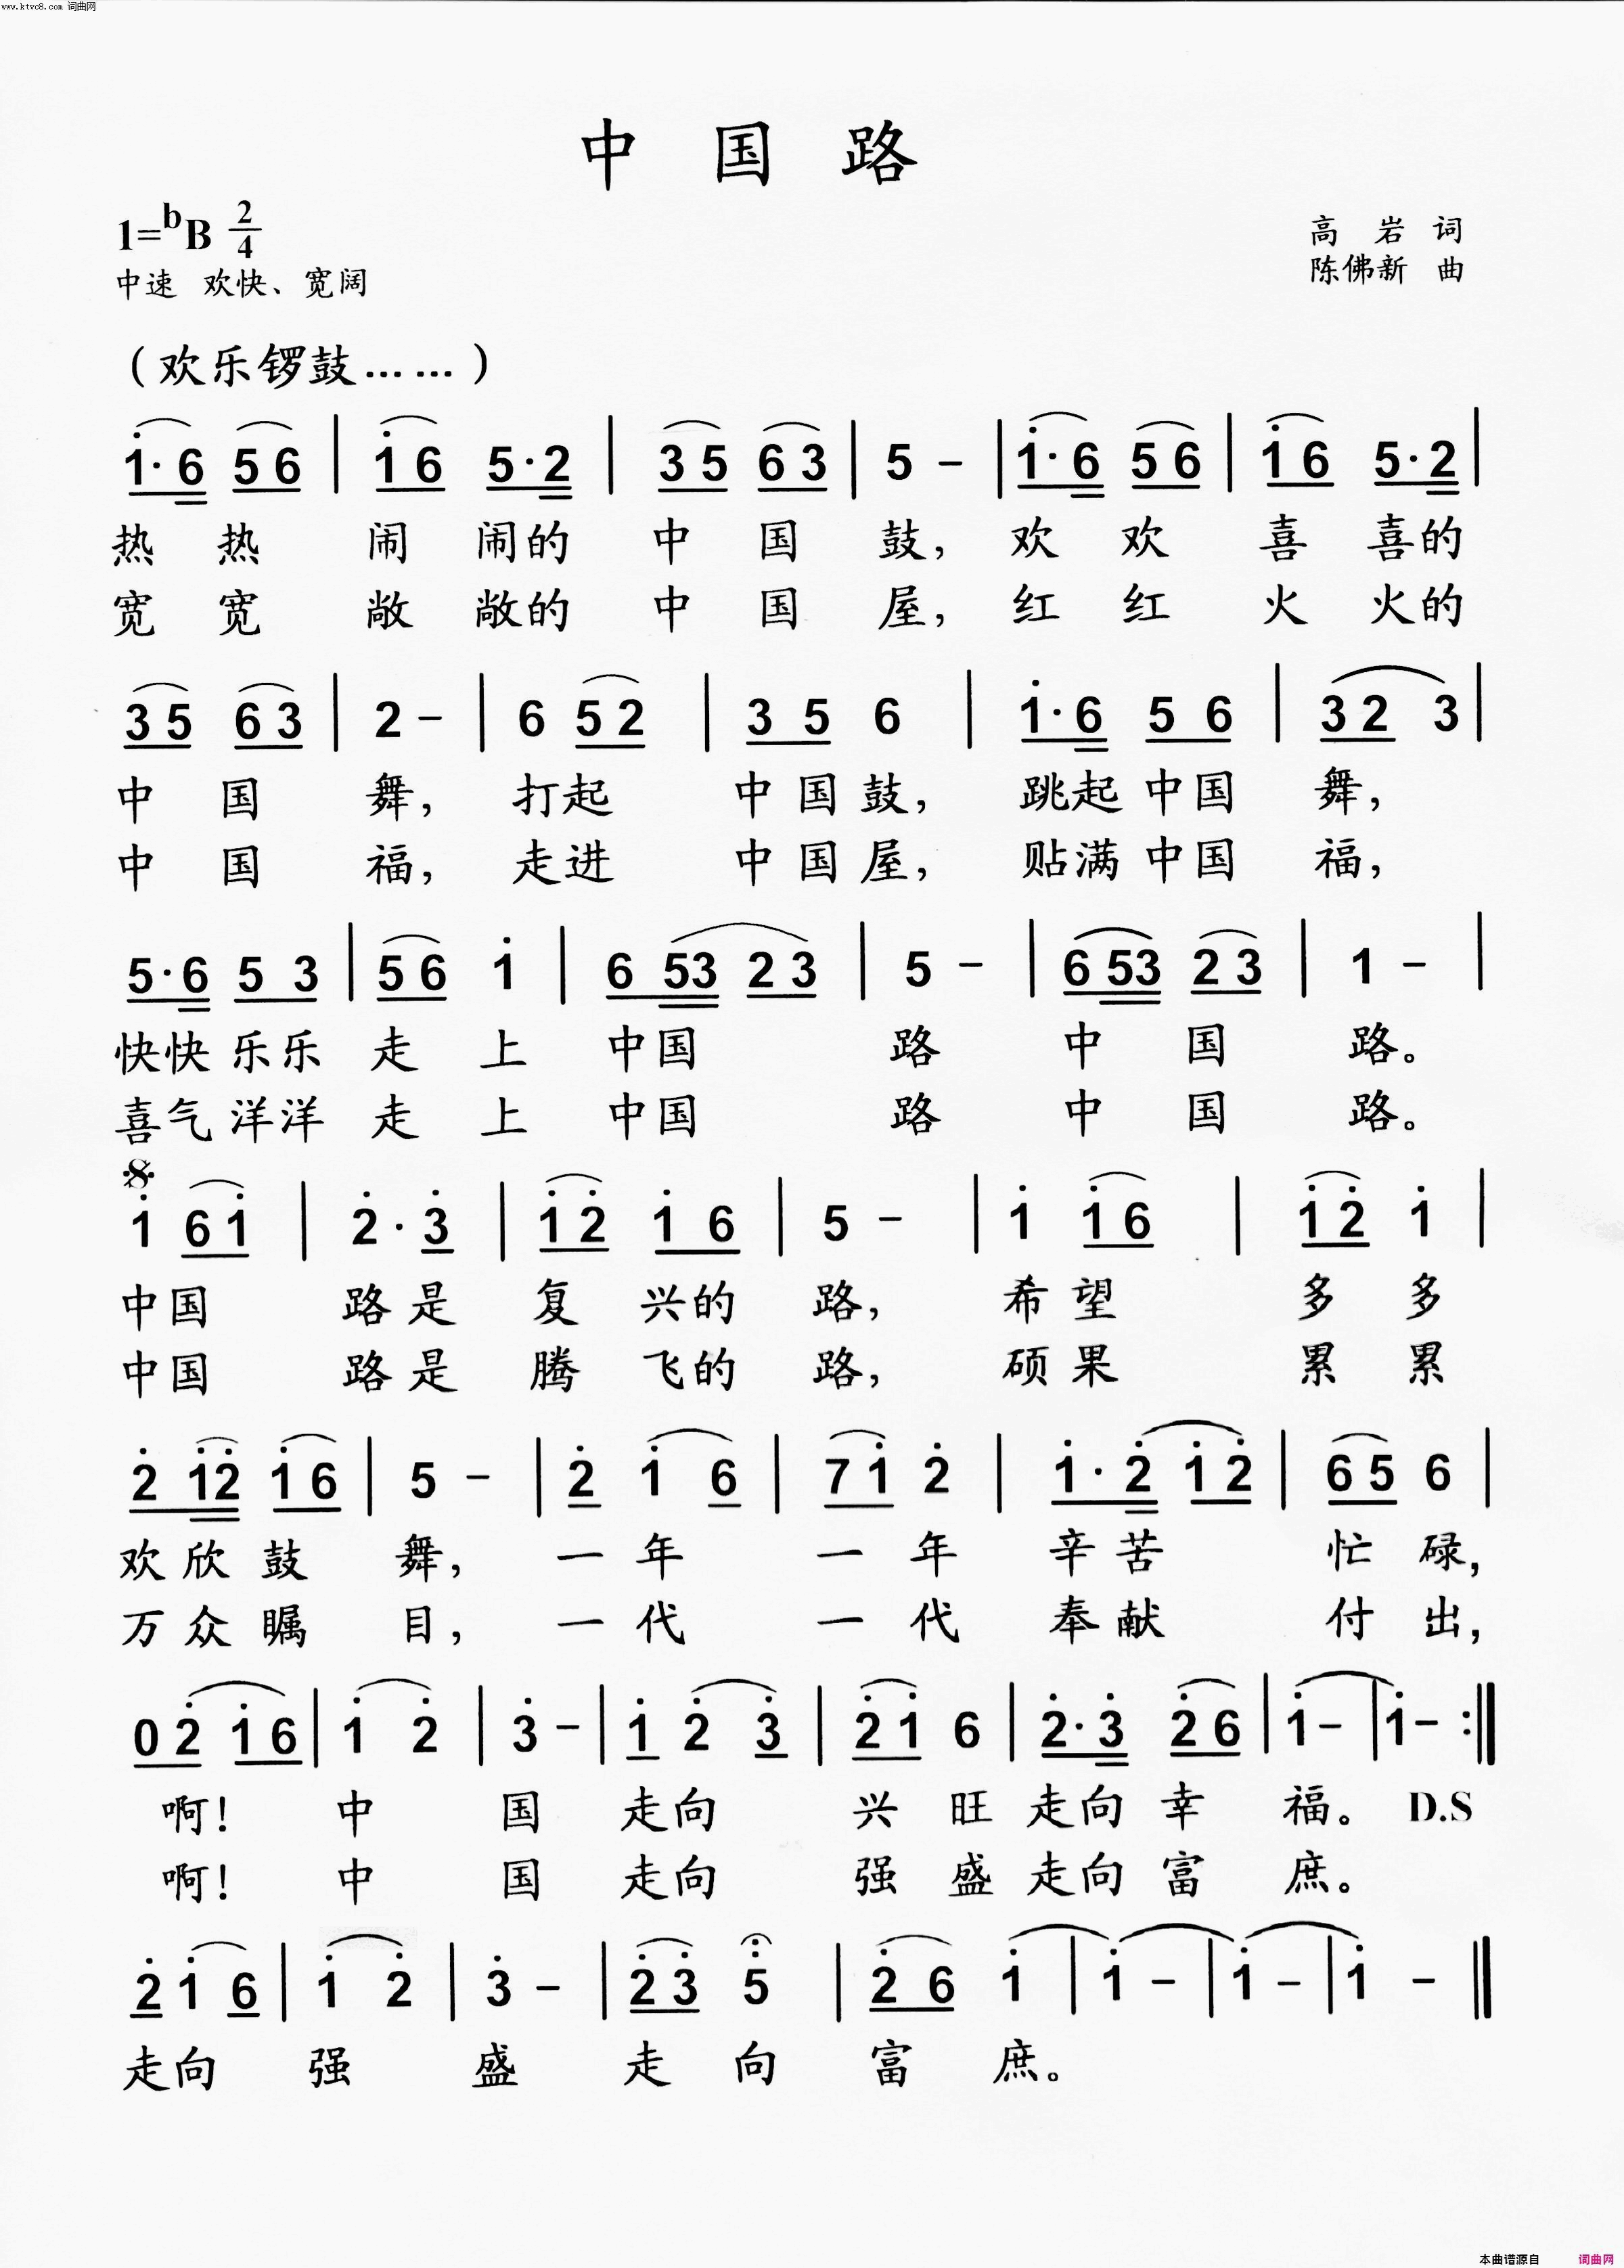 www.ktvc8.com 词曲网
中 国 路
1=bB 2/4
高 岩 词
中速 欢快、宽阔
陈佛新 曲
（欢乐锣鼓……）
1·6 5 6 | 1 6 5·2 | 3 5 6 3 | 5 – | 1·6 5 6 | 1 6 5·2 |
热 热 闹 闹的 中 国 鼓， 欢 欢 喜 喜的
宽 宽 敞 敞的 中 国 屋， 红 红 火 火的
3 5 6 3 | 2 – | 6 5 2 | 3 5 6 | 1·6 5 6 | 3 2 3 |
中 国 舞， 打起 中国鼓， 跳起中国 舞，
中 国 福， 走进 中国屋， 贴满中国 福，
5·6 5 3 | 5 6 1 | 6 53 2 3 | 5 – | 6 53 2 3 | 1 – |
快快乐乐 走 上 中国 路 中 国 路。
喜气洋洋 走 上 中国 路 中 国 路。
𝄋
1 6 1 | 2·3 | 1 2 1 6 | 5 – | 1 1 6 | 1 2 1 |
中国 路是 复 兴的 路， 希望 多 多
中国 路是 腾 飞的 路， 硕果 累 累
2 12 1 6 | 5 – | 2 1 6 | 7 1 2 | 1·2 1 2 | 6 5 6 |
欢欣鼓 舞， 一 年 一 年 辛苦 忙 碌，
万众瞩 目， 一 代 一 代 奉献 付 出，
0 2 1 6 | 1 2 | 3 – | 1 2 3 | 2 1 6 | 2·3 2 6 | 1 – | 1 – :‖
啊！ 中 国 走向 兴 旺 走向 幸 福。 D.S
啊！ 中 国 走向 强 盛 走向 富 庶。
2 1 6 | 1 2 | 3 – | 2 3 5 | 2 6 1 | 1 – | 1 – | 1 – ‖
走向 强 盛 走 向 富 庶。
本曲谱源自 词曲网